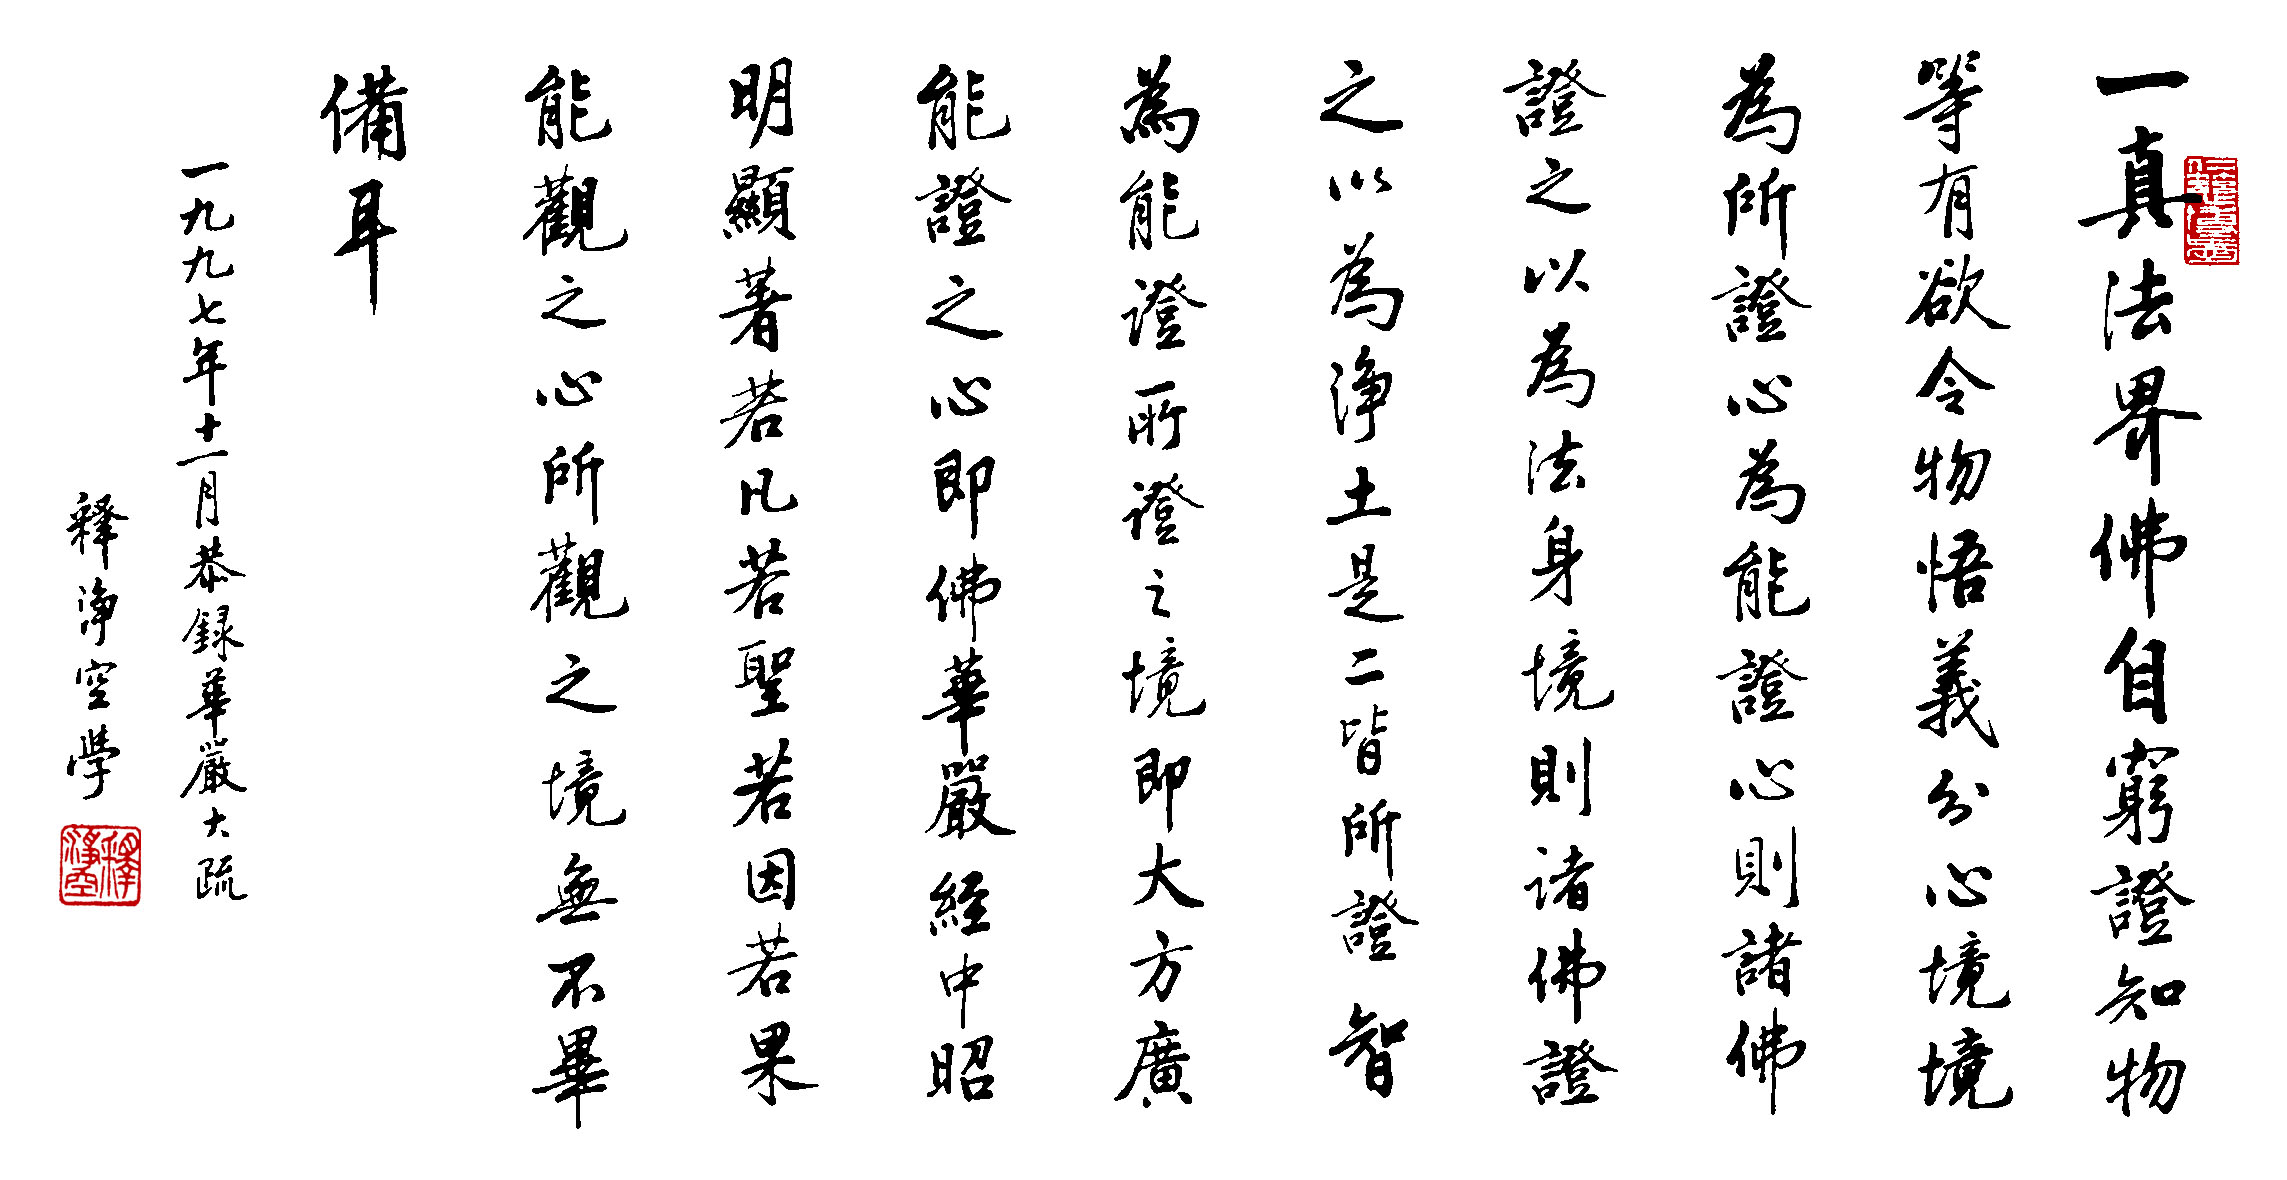 一真法界佛自窮證知物
等有欲令物悟義分心境境
為所證心為能證心則諸佛
證之以為法身境則诸佛證
之以為淨土是二皆所證智
為能證所證之境即大方廣
能證之心即佛華嚴經中昭
明顯著若凡若聖若因若果
能觀之心所觀之境無不畢
備耳
一九九七年十一月恭録華嚴大疏
释淨空學
釋淨空